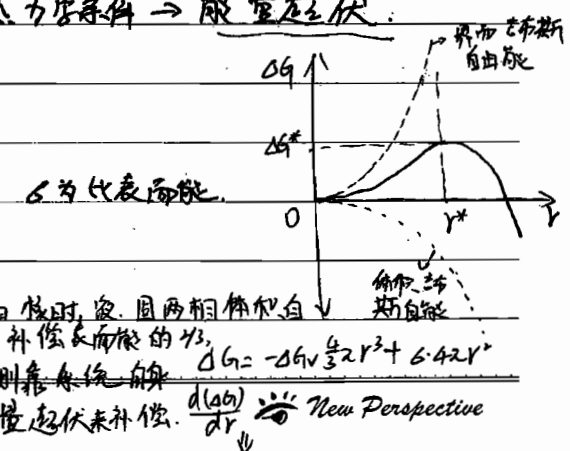 力学条件 → 能量起伏:
界面吉布斯
自由能
ΔG
ΔG*
σ为代表面能.
0
r*
r
体积吉布
斯自由能
核时,液.固两相体积自
补偿表面能的2/3,
ΔG = -ΔGv 4/3 πr³ + σ·4πr²
则靠系统自身
量起伏来补偿. d(ΔG)/dr New Perspective